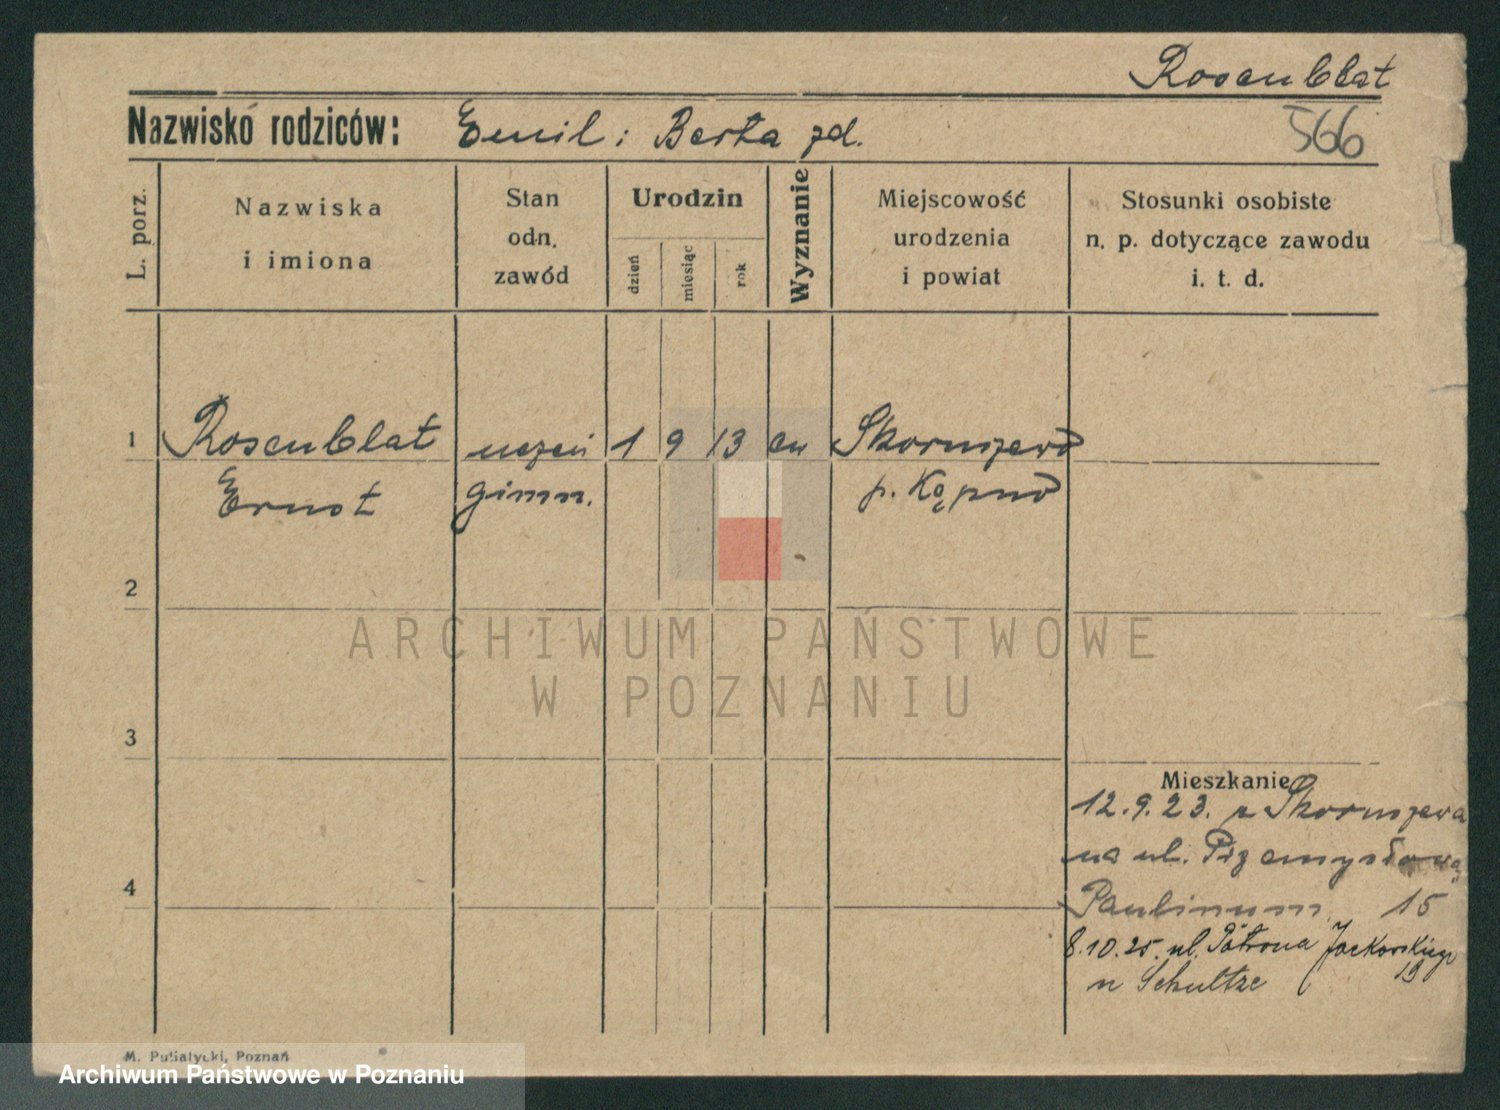 Rosenblat
Nazwisko rodziców: Emil i Berta zd.
566
L. porz.
Nazwiska
i imiona
Stan
odn.
zawód
Urodzin
dzień
miesiąc
rok
Wyznanie
Miejscowość
urodzenia
i powiat
Stosunki osobiste
n. p. dotyczące zawodu
i. t. d.
1 Rosenblat uczeń 1 9 13 ew Skoroszewo
Ernst gimn. p. Kępno
2
3
4
ARCHIWUM PAŃSTWOWE
W POZNANIU
Mieszkanie
12.9.23. z Skoroszewa
na ul. Przemysłową
Paulinum 15
8.10.25. ul. Patrona Jackowskiego
u Schultze 13
M. Putiatycki, Poznań
Archiwum Państwowe w Poznaniu